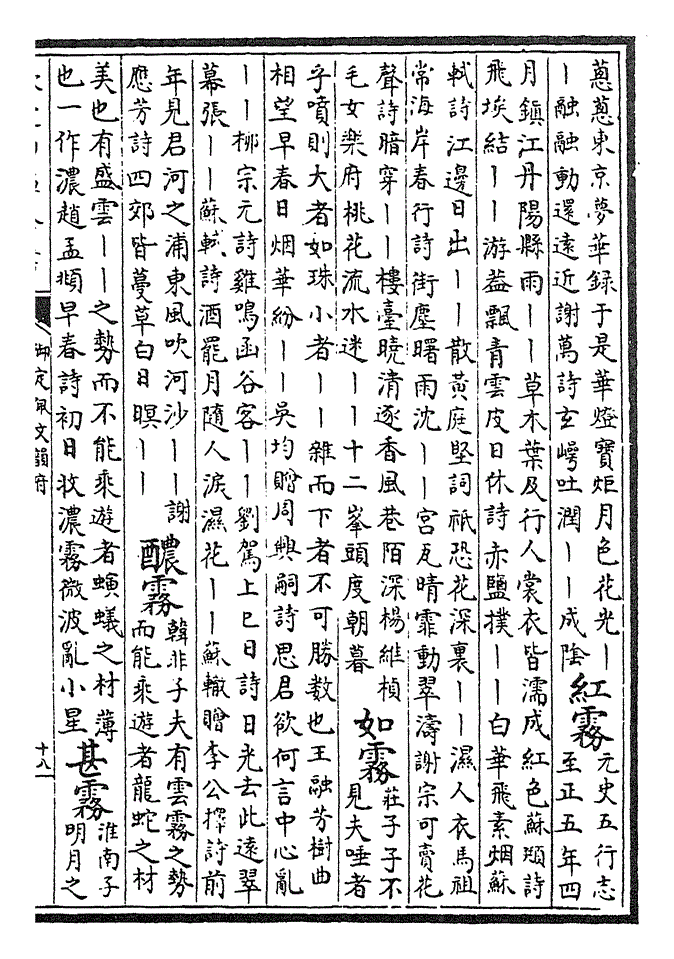 蔥蔥東京夢華録于是華燈寶炬月色花光丨
丨融融動還遠近謝萬詩玄崿吐潤丨丨成陰
紅霧
元史五行志
至正五年四
月鎮江丹陽縣雨丨丨草木葉及行人裳衣皆濡成紅色蘇頲詩
飛埃結丨丨游葢飄青雲皮日休詩赤鹽撲丨丨白華飛素烟蘇
軾詩江邊日出丨丨散黃庭堅詞祇恐花深裏丨丨濕人衣馬祖
常海岸春行詩街塵曙雨沈丨丨宮瓦晴霏動翠濤謝宗可賣花
聲詩暗穿丨丨樓臺曉清逐香風巷陌深楊維楨
毛女樂府桃花流水迷丨丨十二峯頭度朝暮
如霧
莊子子不
見夫唾者
乎噴則大者如珠小者丨丨雜而下者不可勝数也王融芳樹曲
相望早春日烟華紛丨丨吳均贈周興嗣詩思君欲何言中心亂
丨丨栁宗元詩雞鳴函谷客丨丨劉駕上巳日詩日光去此遠翠
幕張丨丨蘇軾詩酒罷月隨人淚濕花丨丨蘇轍贈李公擇詩前
年見君河之浦東風吹河沙丨丨謝
應芳詩四郊皆蔓草白日暝丨丨
醲霧
韓非子夫有雲霧之勢
而能乘遊者龍蛇之材
美也有盛雲丨丨之勢而不能乘遊者螾蟻之材薄
也一作濃趙孟頫早春詩初日收濃霧微波亂小星
甚霧
淮南子
明月之
御定佩文韻府
十八